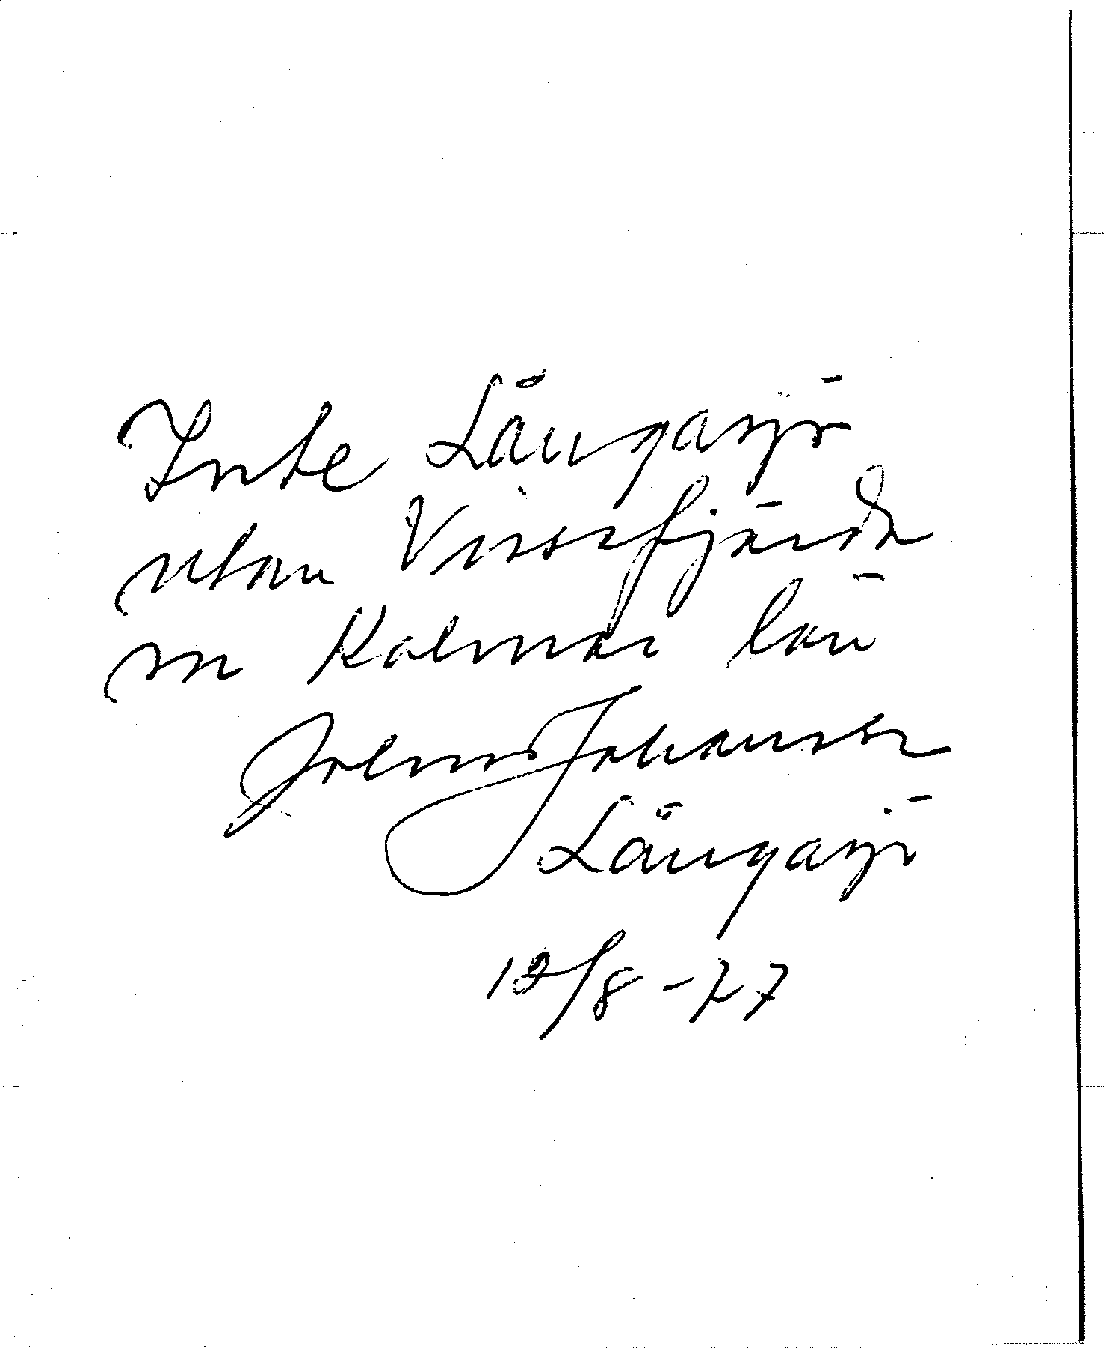 Inte Långasjö
utan Vissefjärda
in Kalmar län
John Johansson
Långasjö
12/8-77